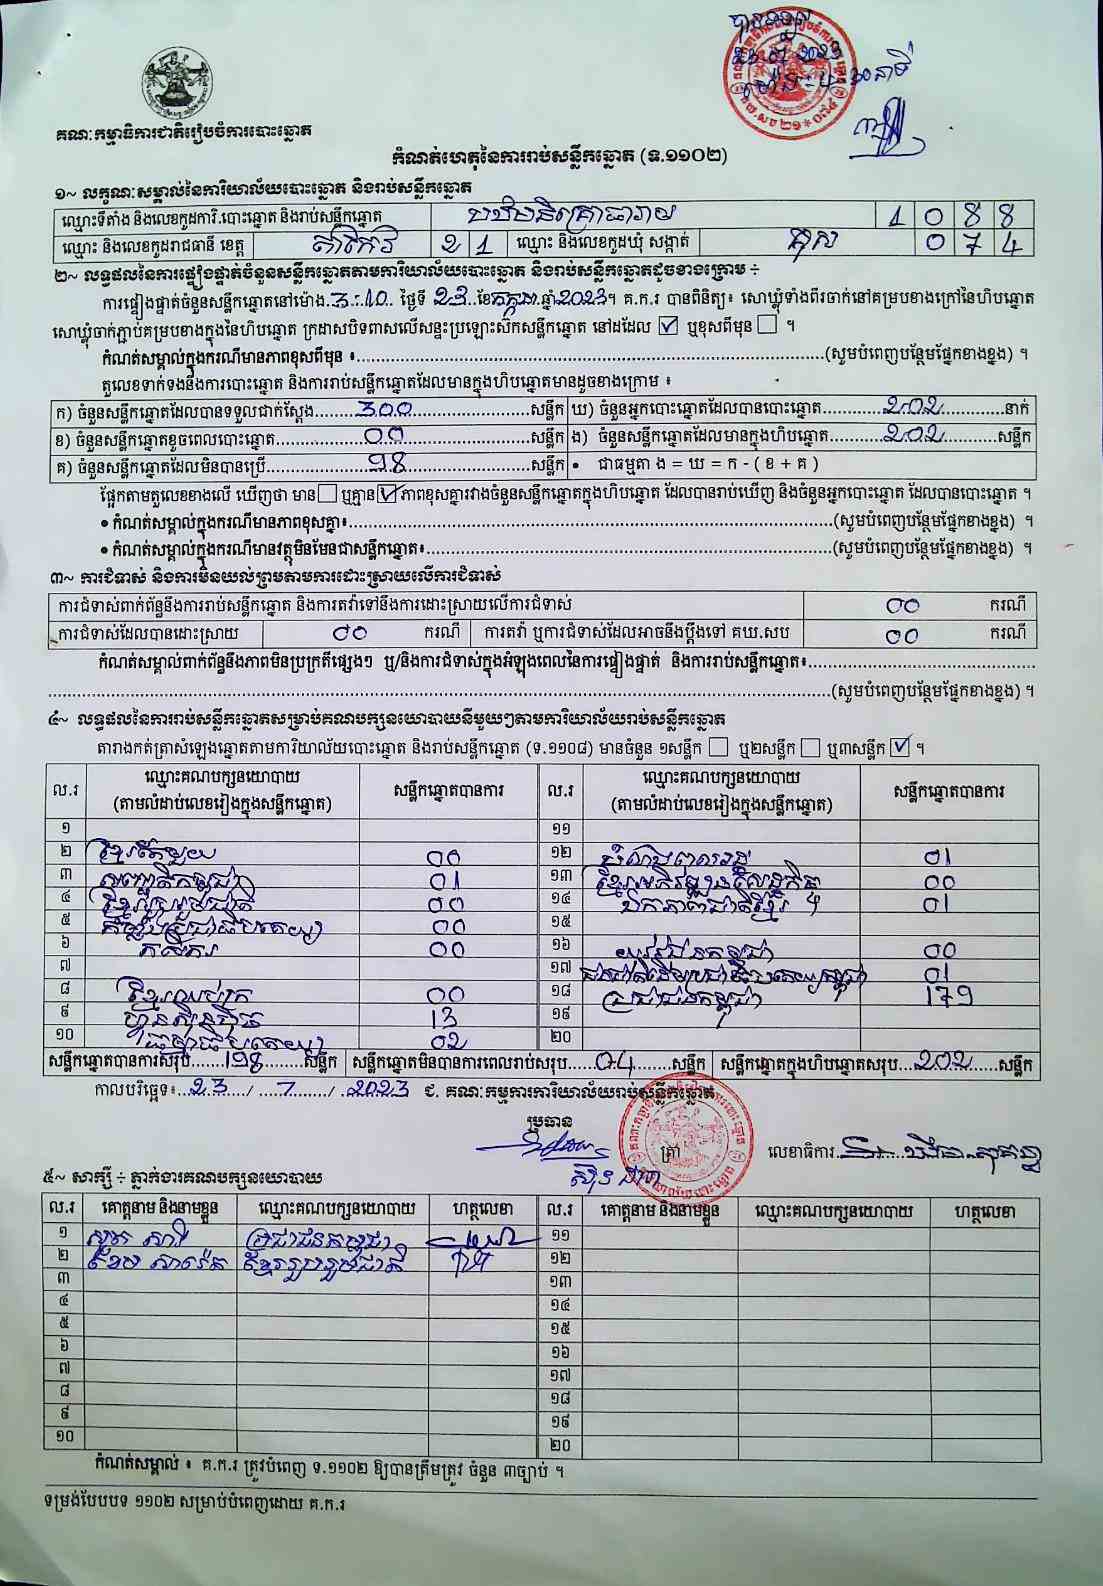 បានទទួល
២៣.៧.២០២៣
ម៉ោង: ៤ ៖ ២០នាទី
គណៈកម្មាធិការជាតិរៀបចំការបោះឆ្នោត
កំណត់ហេតុនៃការរាប់សន្លឹកឆ្នោត (ទ.១១០២)
១~ លក្ខណៈសម្គាល់នៃការិយាល័យបោះឆ្នោត និងរាប់សន្លឹកឆ្នោត
ឈ្មោះទីតាំង និងលេខកូដការិ.បោះឆ្នោត និងរាប់សន្លឹកឆ្នោត បឋមនិគ្រោធារាម 1 0 8 8
ឈ្មោះ និងលេខកូដរាជធានី ខេត្ត តាកែវ 2 1 ឈ្មោះ និងលេខកូដឃុំ សង្កាត់ គុស 0 7 4
២~ លទ្ធផលនៃការផ្ទៀងផ្ទាត់ចំនួនសន្លឹកឆ្នោតតាមការិយាល័យបោះឆ្នោត និងរាប់សន្លឹកឆ្នោតដូចខាងក្រោម ÷
ការផ្ទៀងផ្ទាត់ចំនួនសន្លឹកឆ្នោតនៅម៉ោង 3:10 ថ្ងៃទី 23 ខែ កក្កដា ឆ្នាំ 2023។ គ.ក.រ បានពិនិត្យ៖ សោឃ្លុំទាំងពីរចាក់នៅគម្របខាងក្រៅនៃហិបឆ្នោត
សោឃ្លុំចាក់ភ្ជាប់គម្របខាងក្នុងនៃហិបឆ្នោត ក្រដាសបិទពាសលើសន្ទះប្រឡោះស៊កសន្លឹកឆ្នោត នៅដដែល ☑ ឬខុសពីមុន ☐ ។
កំណត់សម្គាល់ក្នុងករណីមានភាពខុសពីមុន ៖ (សូមបំពេញបន្ថែមផ្នែកខាងខ្នង) ។
តួលេខទាក់ទងនឹងការបោះឆ្នោត និងការរាប់សន្លឹកឆ្នោតដែលមានក្នុងហិបឆ្នោតមានដូចខាងក្រោម ៖
ក) ចំនួនសន្លឹកឆ្នោតដែលបានទទួលជាក់ស្តែង 300 សន្លឹក ឃ) ចំនួនអ្នកបោះឆ្នោតដែលបានបោះឆ្នោត 202 នាក់
ខ) ចំនួនសន្លឹកឆ្នោតខូចពេលបោះឆ្នោត 00 សន្លឹក ង) ចំនួនសន្លឹកឆ្នោតដែលមានក្នុងហិបឆ្នោត 202 សន្លឹក
គ) ចំនួនសន្លឹកឆ្នោតដែលមិនបានប្រើ 98 សន្លឹក • ជាធម្មតា ង = ឃ = ក - ( ខ + គ )
ផ្អែកតាមតួលេខខាងលើ ឃើញថា មាន ☐ ឬគ្មាន ☑ ភាពខុសគ្នារវាងចំនួនសន្លឹកឆ្នោតក្នុងហិបឆ្នោត ដែលបានរាប់ឃើញ និងចំនួនអ្នកបោះឆ្នោត ដែលបានបោះឆ្នោត ។
• កំណត់សម្គាល់ក្នុងករណីមានភាពខុសគ្នា៖ (សូមបំពេញបន្ថែមផ្នែកខាងខ្នង) ។
• កំណត់សម្គាល់ក្នុងករណីមានវត្ថុមិនមែនជាសន្លឹកឆ្នោត៖ (សូមបំពេញបន្ថែមផ្នែកខាងខ្នង) ។
៣~ ការជំទាស់ និងការមិនយល់ព្រមតាមការដោះស្រាយលើការជំទាស់
ការជំទាស់ពាក់ព័ន្ធនឹងការរាប់សន្លឹកឆ្នោត និងការតវ៉ាទៅនឹងការដោះស្រាយលើការជំទាស់ 00 ករណី
ការជំទាស់ដែលបានដោះស្រាយ 00 ករណី ការតវ៉ា ឬការជំទាស់ដែលអាចនឹងប្តឹងទៅ គឃ.សប 00 ករណី
កំណត់សម្គាល់ពាក់ព័ន្ធនឹងភាពមិនប្រក្រតីផ្សេងៗ ឬ/និងការជំទាស់ក្នុងអំឡុងពេលនៃការផ្ទៀងផ្ទាត់ និងការរាប់សន្លឹកឆ្នោត៖
(សូមបំពេញបន្ថែមផ្នែកខាងខ្នង) ។
៤~ លទ្ធផលនៃការរាប់សន្លឹកឆ្នោតសម្រាប់គណបក្សនយោបាយនីមួយៗតាមការិយាល័យរាប់សន្លឹកឆ្នោត
តារាងកត់ត្រាសំឡេងឆ្នោតតាមការិយាល័យបោះឆ្នោត និងរាប់សន្លឹកឆ្នោត (ទ.១១០៨) មានចំនួន ១សន្លឹក ☐ ឬ២សន្លឹក ☐ ឬ៣សន្លឹក ☑ ។
ល.រ ឈ្មោះគណបក្សនយោបាយ (តាមលំដាប់លេខរៀងក្នុងសន្លឹកឆ្នោត) សន្លឹកឆ្នោតបានការ ល.រ ឈ្មោះគណបក្សនយោបាយ (តាមលំដាប់លេខរៀងក្នុងសន្លឹកឆ្នោត) សន្លឹកឆ្នោតបានការ
១ ១១
២ ខ្មែរតែមួយ 00 ១២ សំបុកឃ្មុំ 01
៣ សញ្ជាតិកម្ពុជា 01 ១៣ ខ្មែរអភិវឌ្ឍន៍សេដ្ឋកិច្ច 00
៤ ខ្មែររួបរួមជាតិ 00 ១៤ ឯកភាពជាតិខ្មែរ 01
៥ កម្លាំងប្រជាធិបតេយ្យ 00 ១៥
៦ កសិករ 00 ១៦ យុវជនកម្ពុជា 00
៧ ១៧ ជនជាតិដើមប្រជាធិបតេយ្យកម្ពុជា 01
៨ ខ្មែរឈប់ក្រ 00 ១៨ ប្រជាជនកម្ពុជា 179
៩ ហ៊្វុនស៊ិនប៉ិច 13 ១៩
១០ ធម្មាធិបតេយ្យ 02 ២០
សន្លឹកឆ្នោតបានការសរុប 198 សន្លឹក សន្លឹកឆ្នោតមិនបានការពេលរាប់សរុប 04 សន្លឹក សន្លឹកឆ្នោតក្នុងហិបឆ្នោតសរុប 202 សន្លឹក
កាលបរិច្ឆេទ៖ 23 / 7 / 2023 ជ. គណៈកម្មការការិយាល័យរាប់សន្លឹកឆ្នោត
ប្រធាន
ត្រា
លេខាធិការ
៥~ សាក្សី ÷ ភ្នាក់ងារគណបក្សនយោបាយ
ល.រ គោត្តនាម និងនាមខ្លួន ឈ្មោះគណបក្សនយោបាយ ហត្ថលេខា ល.រ គោត្តនាម និងនាមខ្លួន ឈ្មោះគណបក្សនយោបាយ ហត្ថលេខា
១ ប្រជាជនកម្ពុជា ១១
២ ខ្មែររួបរួមជាតិ ១២
៣ ១៣
៤ ១៤
៥ ១៥
៦ ១៦
៧ ១៧
៨ ១៨
៩ ១៩
១០ ២០
កំណត់សម្គាល់ ៖ គ.ក.រ ត្រូវបំពេញ ទ.១១០២ ឱ្យបានត្រឹមត្រូវ ចំនួន ៣ច្បាប់ ។
ទម្រង់បែបបទ ១១០២ សម្រាប់បំពេញដោយ គ.ក.រ